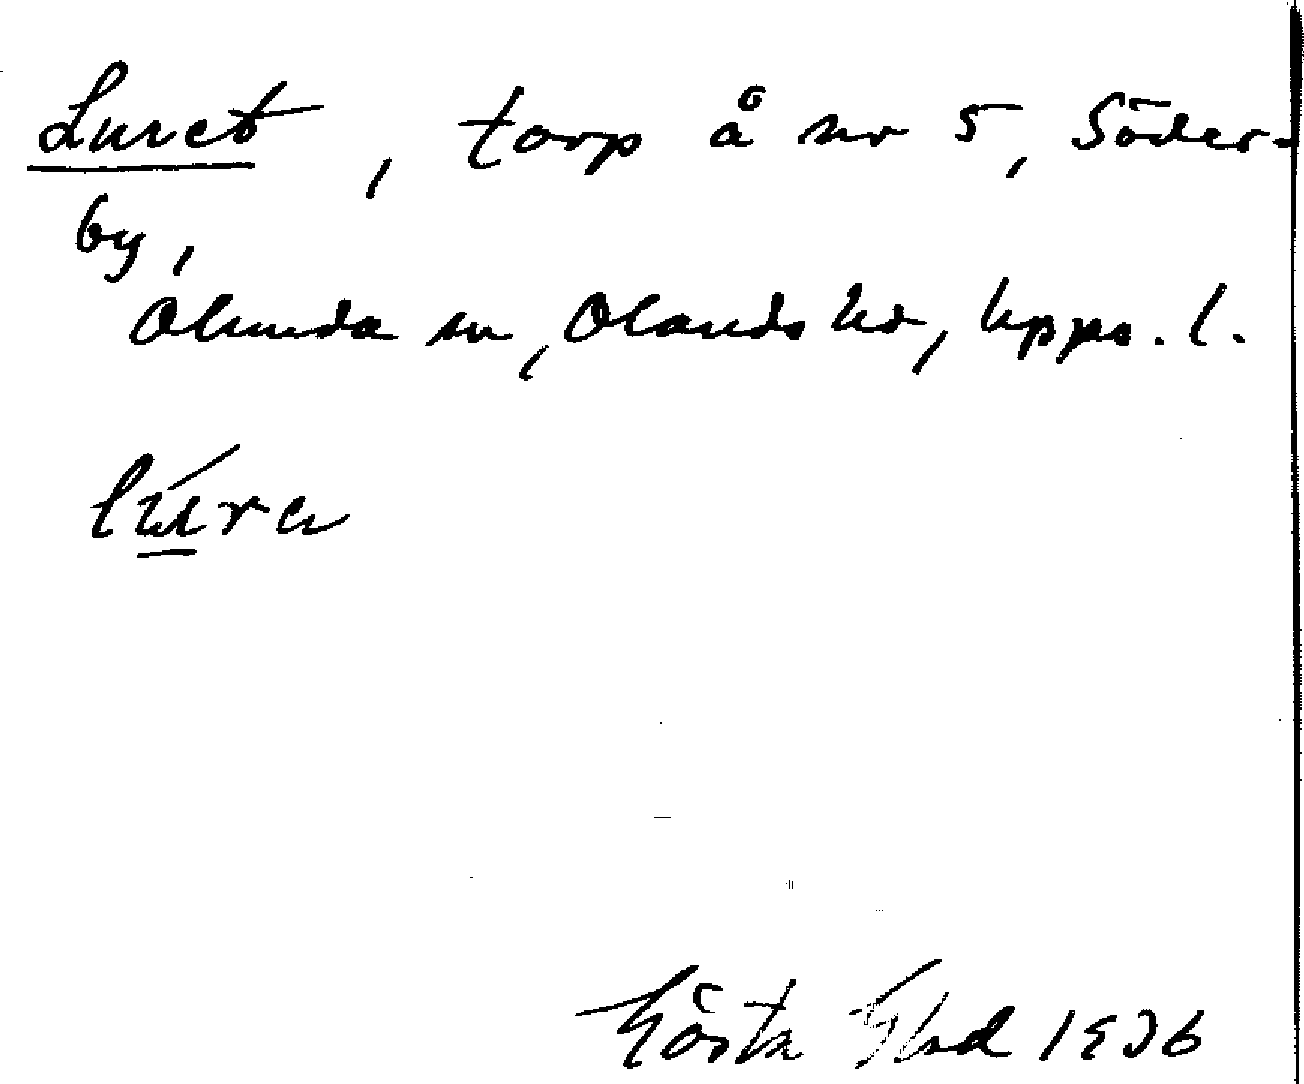 Luret, torp å nr 5, Söder-
by,
Alunda sn, Olands hd, Upps. l.
lu̲ra
Gösta 1936